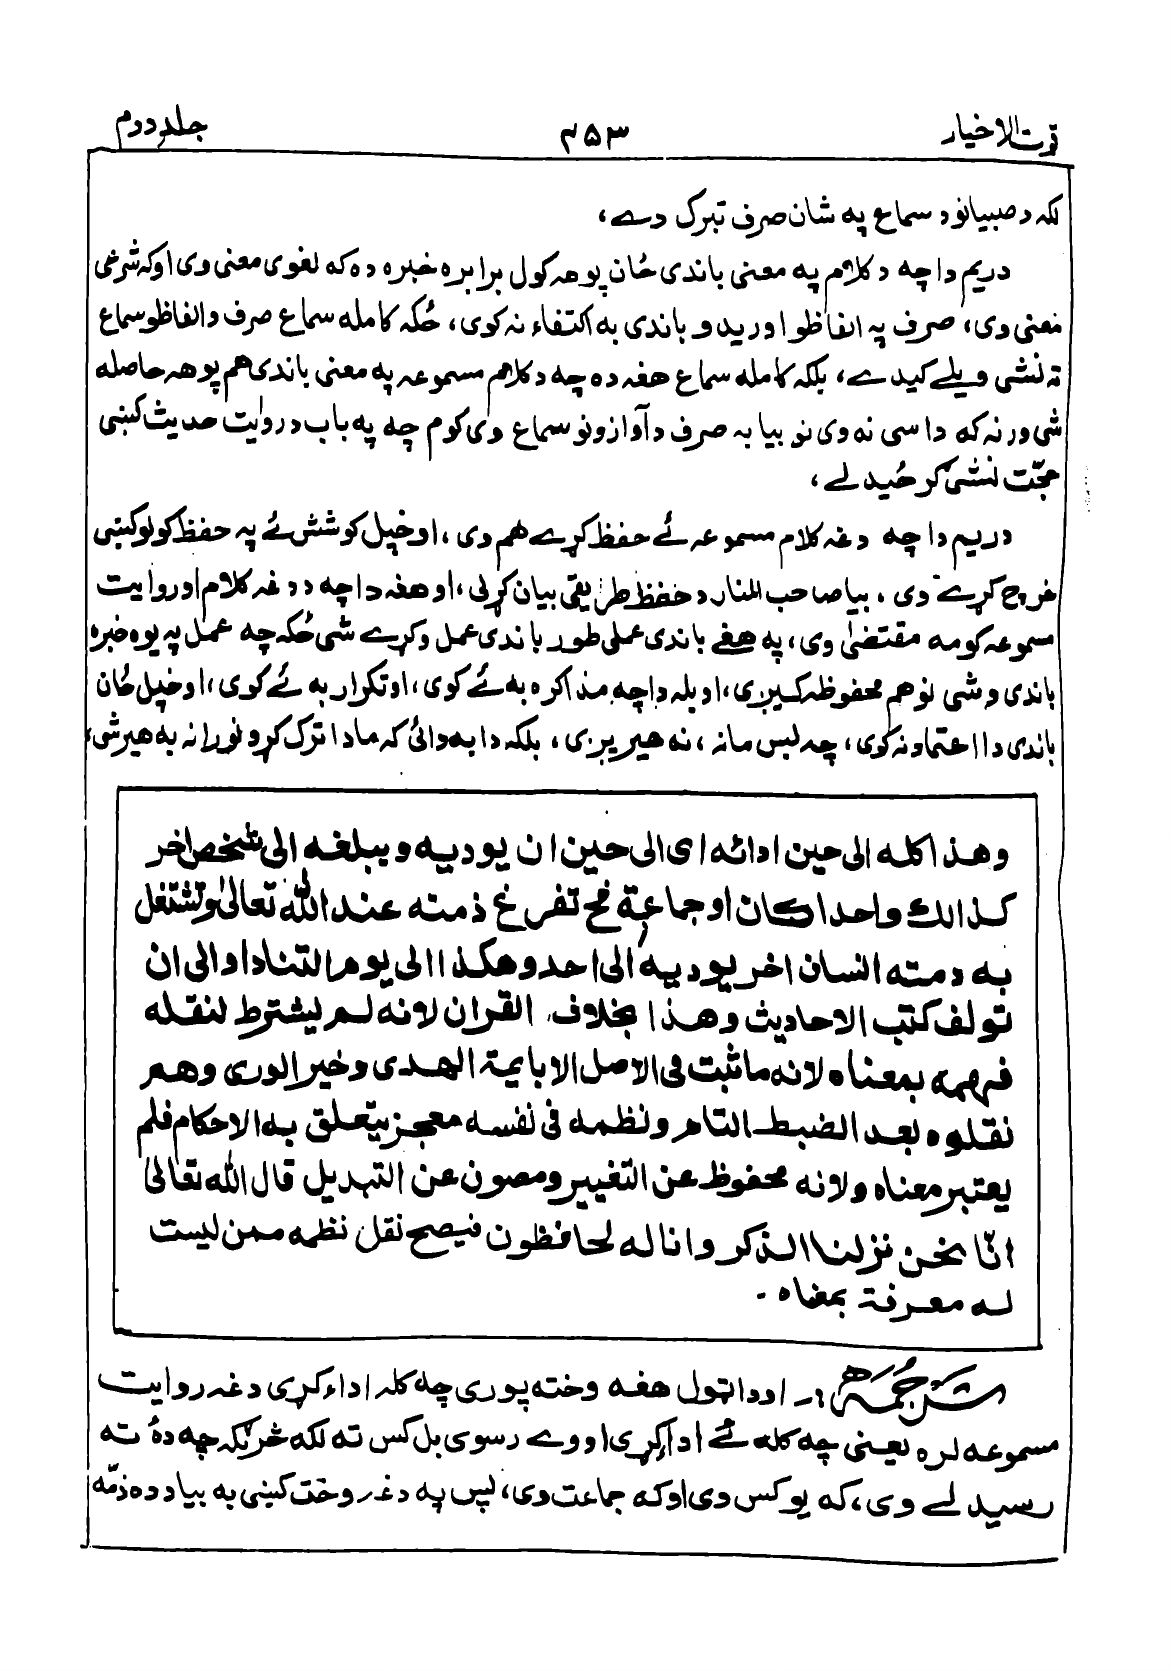 قوت الاخیار ۴۵۳ جلد دوم
لکه د صبیانو د سماع په شان صرف تبرک دے،
دریم دا چه د کلام په معنی باندی ځان پوهه کول برابره خبره ده که لغوی معنی وی اوکه شرعی
معنی وی، صرف په الفاظو اوریدو باندی به اکتفاء نه کوی، ځکه کامله سماع صرف د الفاظو سماع
ته نشی ویلے کیدے، بلکه کامله سماع هغه ده چه د کلام مسموعه په معنی باندی هم پوهه حاصله
شی ورنه که داسی نه وی نو بیا به صرف د آوازونو سماع وی کوم چه په باب د روایت حدیث کښی
حجّت نشی گرځیدلے،
دریم دا چه دغه کلام مسموعه ئے حفظ کړے هم وی، او خپل کوشش ئے په حفظ کولو کښی
خرچ کړے وی، بیا صاحب المنار د حفظ طریقی بیان کړلی، او هغه دا چه د دغه کلام او روایت
مسموعه کومه مقتضیٰ وی، په هغے باندی عملی طور باندی عمل وکړے شی ځکه چه عمل په یوه خبره
باندی وشی نو هم محفوظه کیږی، او بله دا چه مذاکره به ئے کوی، او تکرار به ئے کوی، او خپل ځان
باندی دا اعتماد نه کوی، چه لپس مانه، نه هیریږی، بلکه دا به وائی که ما دا ترک کړو نو رانه به هیر شی،
وهذا کله الی حین ادائه ای الی حین ان یودیه ویبلغه الی شخص اخر
کذالك واحدا کان او جماعة فح تفرغ ذمته عند الله تعالیٰ وتشتغل
به دمته انسان اخر یودیه الی احد وهکذا الی یوم التناد اوالی ان
تولف کتب الاحادیث وهذا بخلاف القران لانه لم یشترط لنقله
فهمه بمعناه لانه ما ثبت فی الاصل الا بایمة الهدی وخیر الوری وهم
نقلوه بعد الضبط التام ونظمه فی نفسه معجز یتعلق به الاحکام فلم
یعتبر معناه ولانه محفوظ عن التغییر ومصون عن التبدیل قال الله تعالیٰ
انّا نحن نزلنا الذکر وانا له لحافظون فیصح نقل نظمه ممن لیست
له معرفة بمعناه .
ترجمه :- او دا ټول هغه وخته پوری چه کله اداء کړی دغه روایت
مسموعه لره یعنی چه کله ئے اداء کړی او وے رسوی بل کس ته لکه څرنگه چه دهٔ ته
رسیدلے وی، که یو کس وی اوکه جماعت وی، لپس په دغه وخت کښی به بیا د ده ذمّه